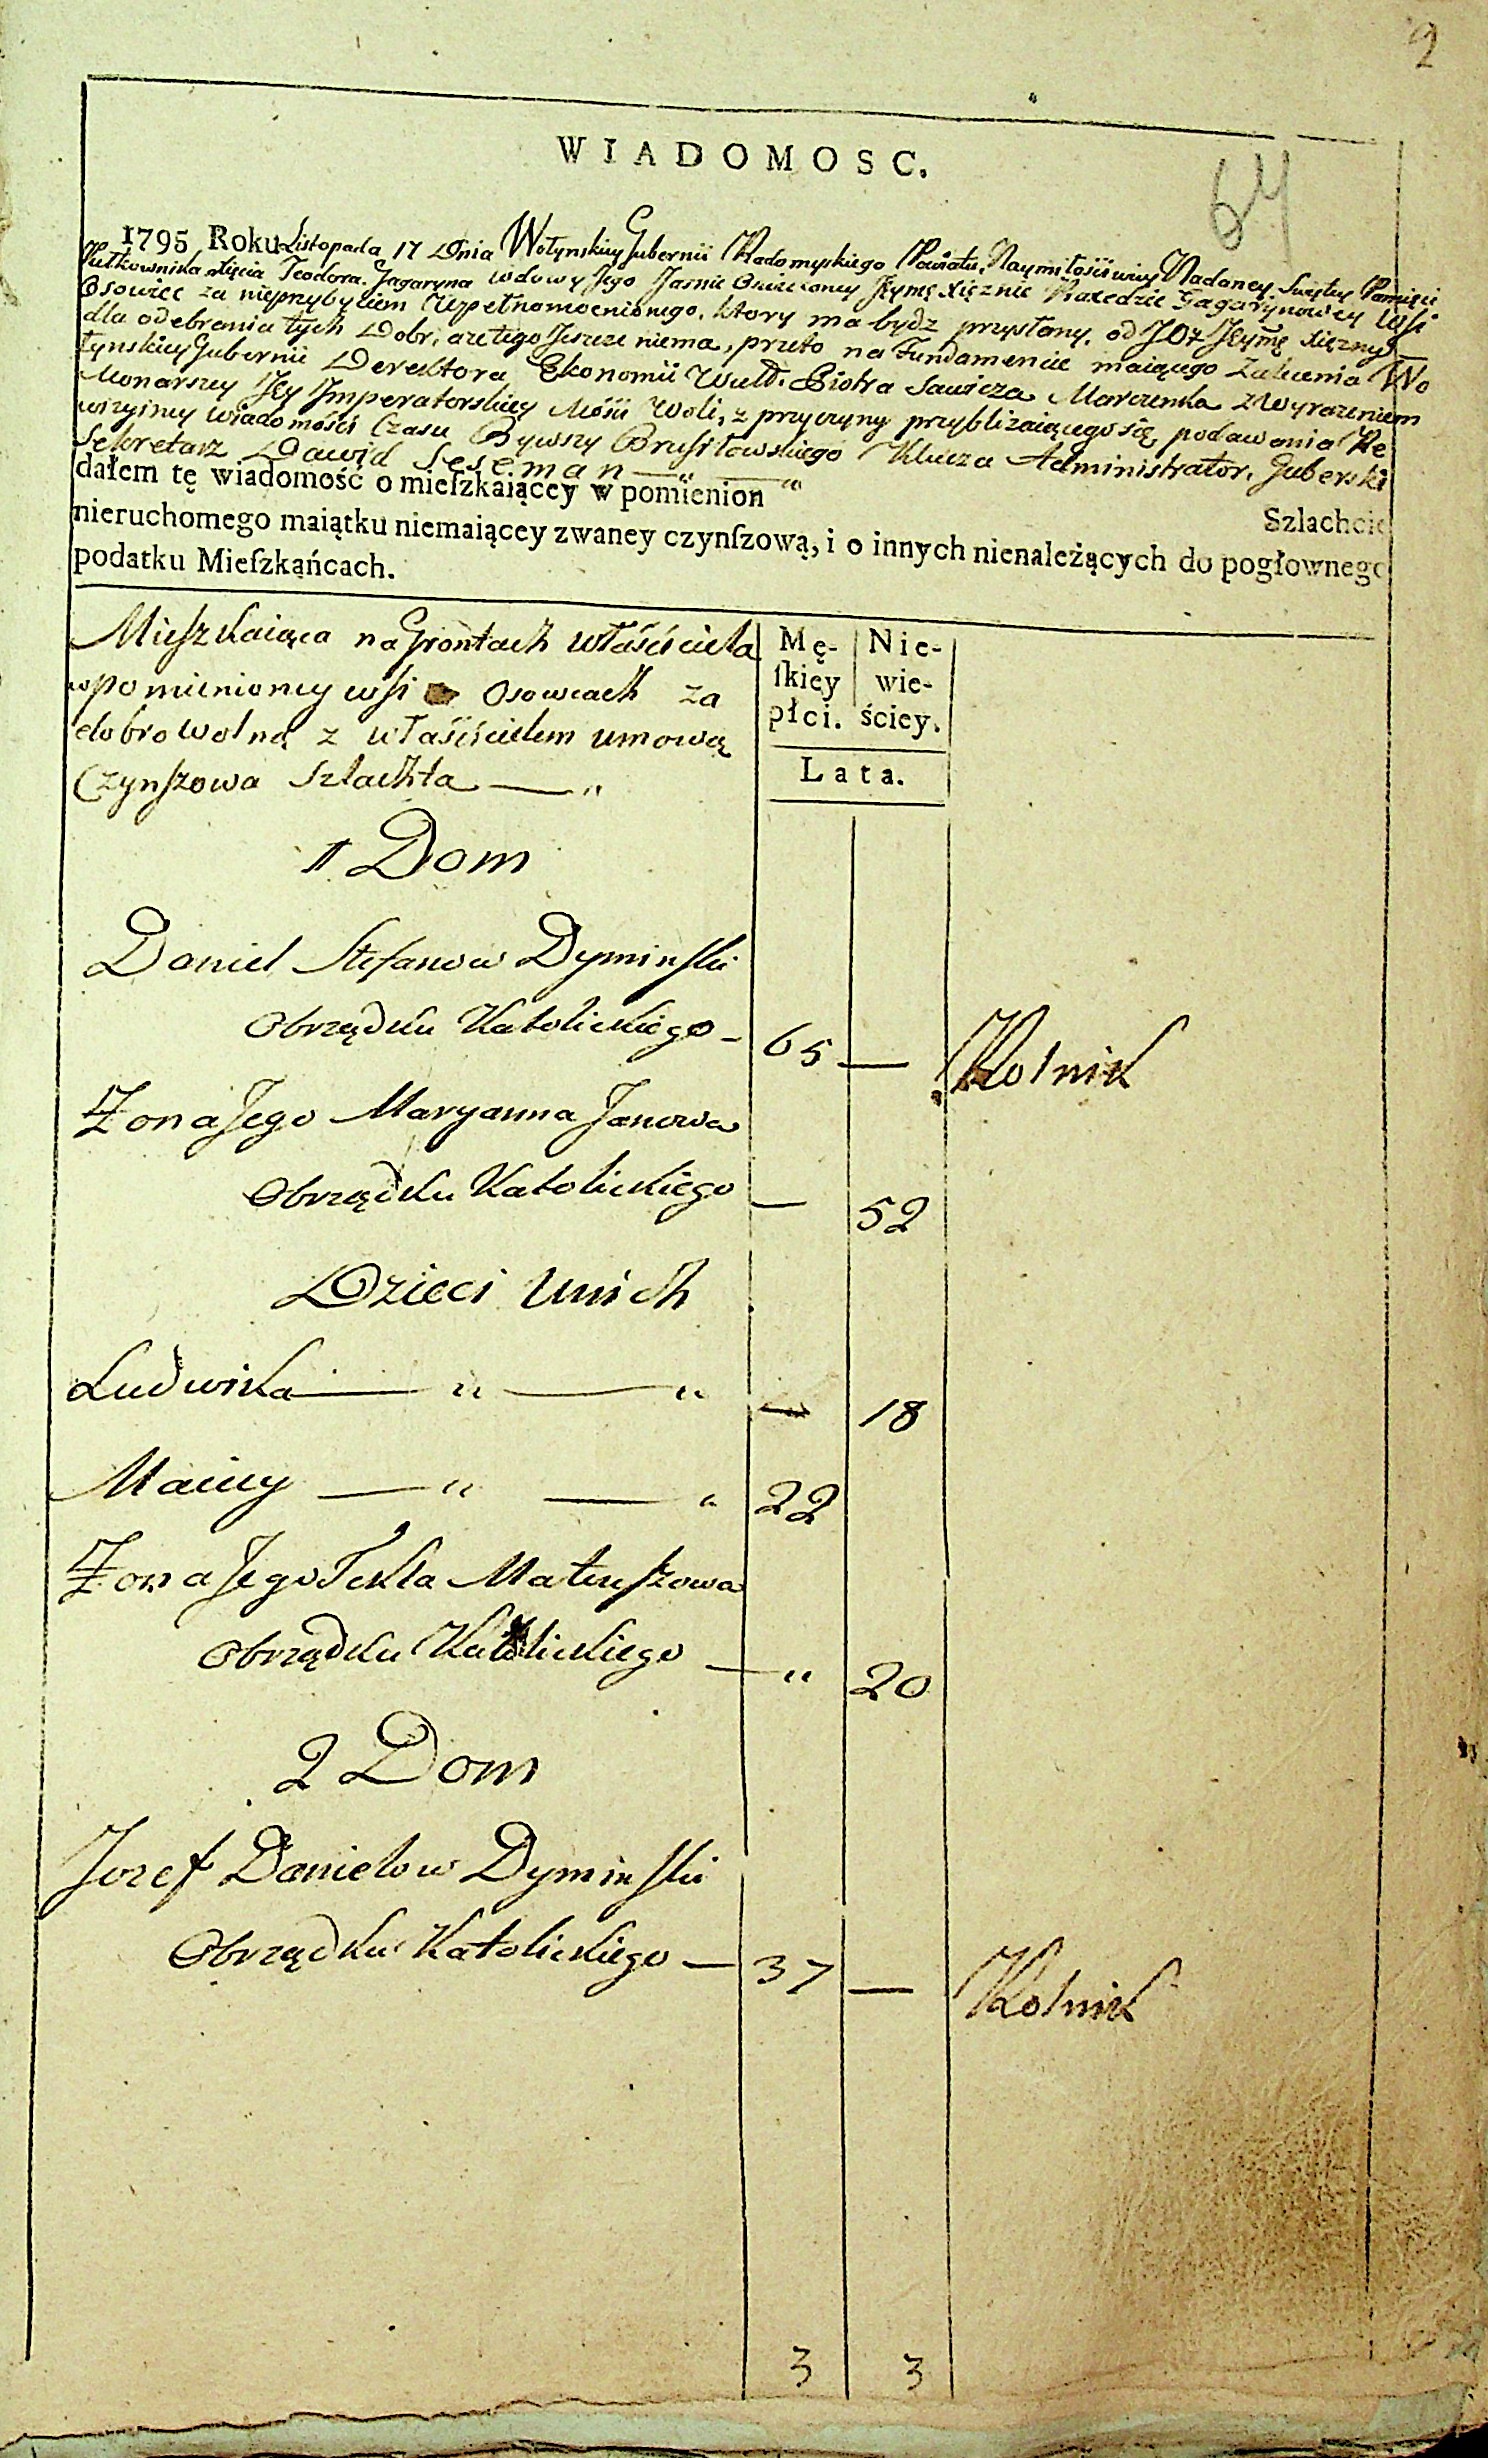 2
WIADOMOSC.
64
1795 Roku Listopada 17 Dnia Wołynskiey Gubernii Radomyskiego Powiatu, Naymiłościwiey Nadaney Swiętey Pamięci
Pułkownika Xięcia Teodora Gagaryna wdowy Jego Jasnie Oswieconey Jeymę Xiężnie Praxedzie Gagarynowey Wsi
Osowiec za nieprzybyciem Upełnomocnionego, ktory ma bydz przysłany, od JOż Jeymę Xiężny
dla odebrania tych Dobr, a że tego Jeszcze niema, przeto na Fundamencie maiącego Zalecenia Wo
łynskiey Gubernii Derektora Ekonomii Piotra Sawicza Marczenka z wyrażeniem
Monarszey Jey Imperatorskiey Mości Woli, z przyczyny przyblizaiącego się podawania Re
wizyiney wiadomości Czasu Bywszy Brusiłowskiego Klucza Administrator, Guberski
Sekretarz Dawid Seseman — " — "
dałem tę wiadomość o mieſzkaiącey w pomienion Szlachcie
nieruchomego maiątku niemaiącey zwaney czynſzową, i o innych nienależących do pogłownego
podatku Mieſzkańcach.
Mieſzkaiąca na Grontach właściciela
wpomienioney wsi Osowcach za
dobrowolną z właścicielem umową
Czynſzowa Szlachta — "
Mę-
ſkiey
płci.
Nie-
wie-
ściey.
Lata.
1 Dom
Daniel Stefanow Dyminſki
Obrządku Katolickiego — 65 — Rolnik
Żona Jego Maryanna Janowa
Obrządku Katolickiego — 52
Dzieci Unich
Ludwika — " — " — 18
Maciey — " — " 22
Żona Jego Tekla Mateuſzowa
Obrządku Katolickiego — " 20
2 Dom
Jozef Danielow Dyminſki
Obrządku Katolickiego — 37 — Rolnik
3 3